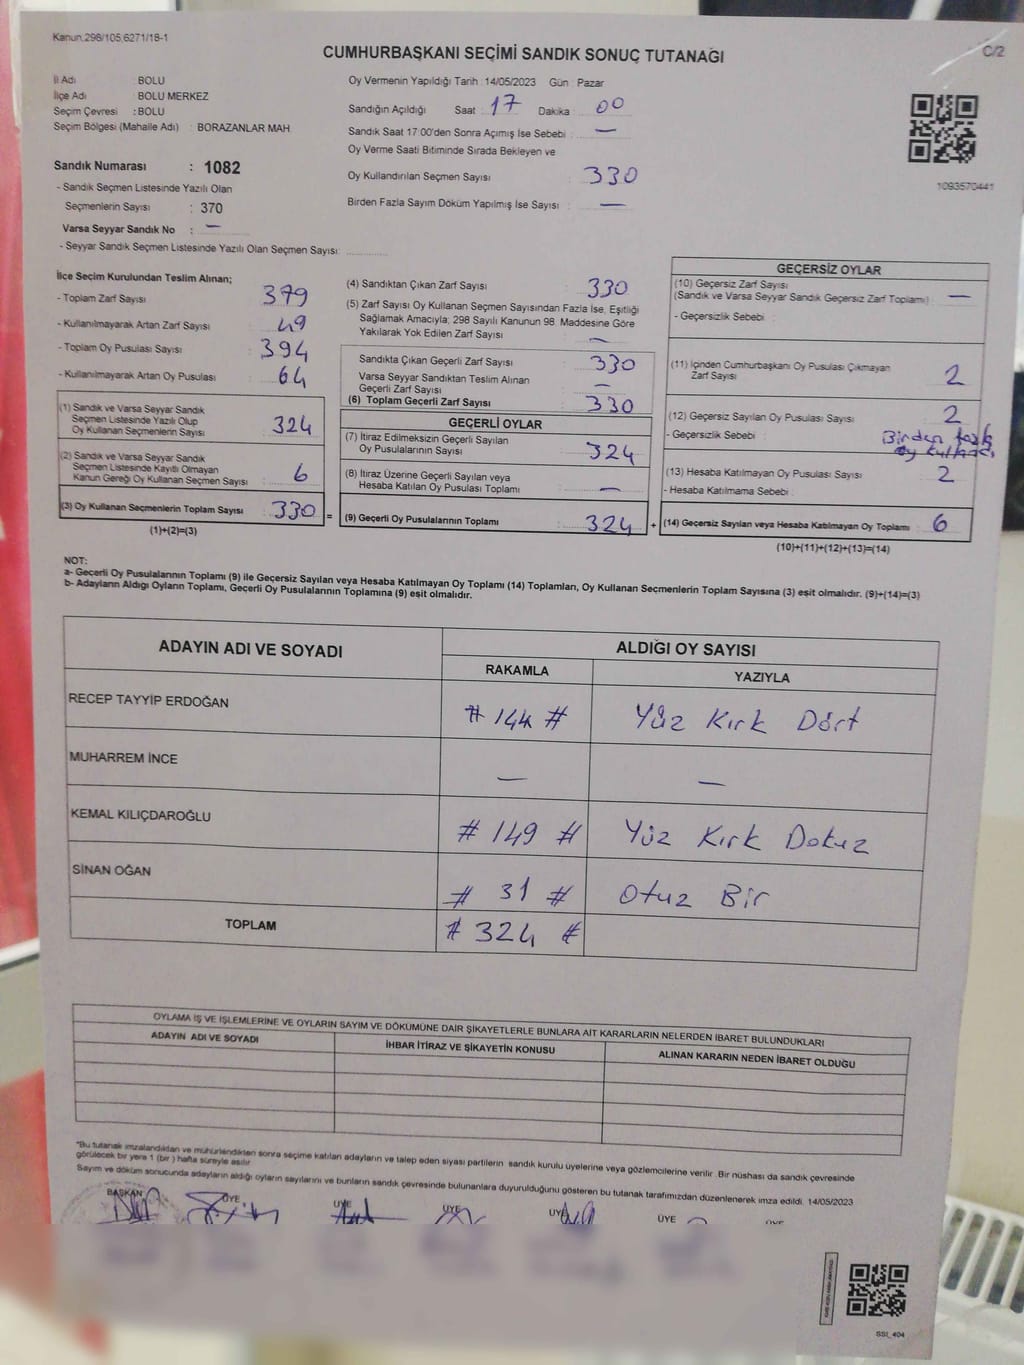 Kanun.298/105,6271/18-1
C/2
CUMHURBAŞKANI SEÇİMİ SANDIK SONUÇ TUTANAĞI
İl Adı : BOLU
İlçe Adı : BOLU MERKEZ
Seçim Çevresi : BOLU
Seçim Bölgesi (Mahalle Adı) : BORAZANLAR MAH
Sandık Numarası : 1082
- Sandık Seçmen Listesinde Yazılı Olan
Seçmenlerin Sayısı : 370
Varsa Seyyar Sandık No : —
- Seyyar Sandık Seçmen Listesinde Yazılı Olan Seçmen Sayısı:
Oy Vermenin Yapıldığı Tarih : 14/05/2023 Gün : Pazar
Sandığın Açıldığı Saat : 17 Dakika : 00
Sandık Saat 17:00'den Sonra Açımış İse Sebebi : —
Oy Verme Saati Bitiminde Sırada Bekleyen ve
Oy Kullandırılan Seçmen Sayısı : 330
Birden Fazla Sayım Döküm Yapılmış İse Sayısı : —
1093570441
İlce Seçim Kurulundan Teslim Alınan;
- Toplam Zarf Sayısı 379
- Kullanılmayarak Artan Zarf Sayısı 49
- Toplam Oy Pusulası Sayısı 394
- Kullanılmayarak Artan Oy Pusulası 64
(1) Sandık ve Varsa Seyyar Sandık
Seçmen Listesinde Yazılı Olup
Oy Kullanan Seçmenlerin Sayısı 324
(2) Sandık ve Varsa Seyyar Sandık
Seçmen Listesinde Kayıtlı Olmayan
Kanun Gereği Oy Kullanan Seçmen Sayısı 6
(3) Oy Kullanan Seçmenlerin Toplam Sayısı 330 =
(1)+(2)=(3)
(4) Sandıktan Çıkan Zarf Sayısı 330
(5) Zarf Sayısı Oy Kullanan Seçmen Sayısından Fazla İse, Eşitliği
Sağlamak Amacıyla; 298 Sayılı Kanunun 98. Maddesine Göre
Yakılarak Yok Edilen Zarf Sayısı —
Sandıkta Çıkan Geçerli Zarf Sayısı 330
Varsa Seyyar Sandıktan Teslim Alınan
Geçerli Zarf Sayısı —
(6) Toplam Geçerli Zarf Sayısı 330
GEÇERLİ OYLAR
(7) İtiraz Edilmeksizin Geçerli Sayılan
Oy Pusulalarının Sayısı 324
(8) İtiraz Üzerine Geçerli Sayılan veya
Hesaba Katılan Oy Pusulası Toplamı —
(9) Geçerli Oy Pusulalarının Toplamı 324 +
GEÇERSİZ OYLAR
(10) Geçersiz Zarf Sayısı
(Sandık ve Varsa Seyyar Sandık Geçersiz Zarf Toplamı) —
- Geçersizlik Sebebi :
(11) İçinden Cumhurbaşkanı Oy Pusulası Çıkmayan
Zarf Sayısı 2
(12) Geçersiz Sayılan Oy Pusulası Sayısı 2
- Geçersizlik Sebebi : Birden fazla
oy kullandı
(13) Hesaba Katılmayan Oy Pusulası Sayısı 2
- Hesaba Katılmama Sebebi :
(14) Geçersiz Sayılan veya Hesaba Katılmayan Oy Toplamı 6
(10)+(11)+(12)+(13)=(14)
NOT:
a- Geçerli Oy Pusulalarının Toplamı (9) ile Geçersiz Sayılan veya Hesaba Katılmayan Oy Toplamı (14) Toplamları, Oy Kullanan Seçmenlerin Toplam Sayısına (3) eşit olmalıdır. (9)+(14)=(3)
b- Adayların Aldığı Oyların Toplamı, Geçerli Oy Pusulalarının Toplamına (9) eşit olmalıdır.
ADAYIN ADI VE SOYADI
ALDIĞI OY SAYISI
RAKAMLA YAZIYLA
RECEP TAYYİP ERDOĞAN # 144 # Yüz Kırk Dört
MUHARREM İNCE — —
KEMAL KILIÇDAROĞLU # 149 # Yüz Kırk Dokuz
SİNAN OĞAN # 31 # Otuz Bir
TOPLAM # 324 #
OYLAMA İŞ VE İŞLEMLERİNE VE OYLARIN SAYIM VE DÖKÜMÜNE DAİR ŞİKAYETLERLE BUNLARA AİT KARARLARIN NELERDEN İBARET BULUNDUKLARI
ADAYIN ADI VE SOYADI İHBAR İTİRAZ VE ŞİKAYETİN KONUSU ALINAN KARARIN NEDEN İBARET OLDUĞU
*Bu tutanak imzalandıktan ve mühürlendikten sonra seçime katılan adayların ve talep eden siyasi partilerin sandık kurulu üyelerine veya gözlemcilerine verilir. Bir nüshası da sandık çevresinde
görülecek bir yere 1 (bir ) hafta süreyle asılır.
Sayım ve döküm sonucunda adayların aldığı oyların sayılarını ve bunların sandık çevresinde bulunanlara duyurulduğunu gösteren bu tutanak tarafımızdan düzenlenerek imza edildi. 14/05/2023
BAŞKAN ÜYE ÜYE ÜYE ÜYE ÜYE ÜYE
SSI_404